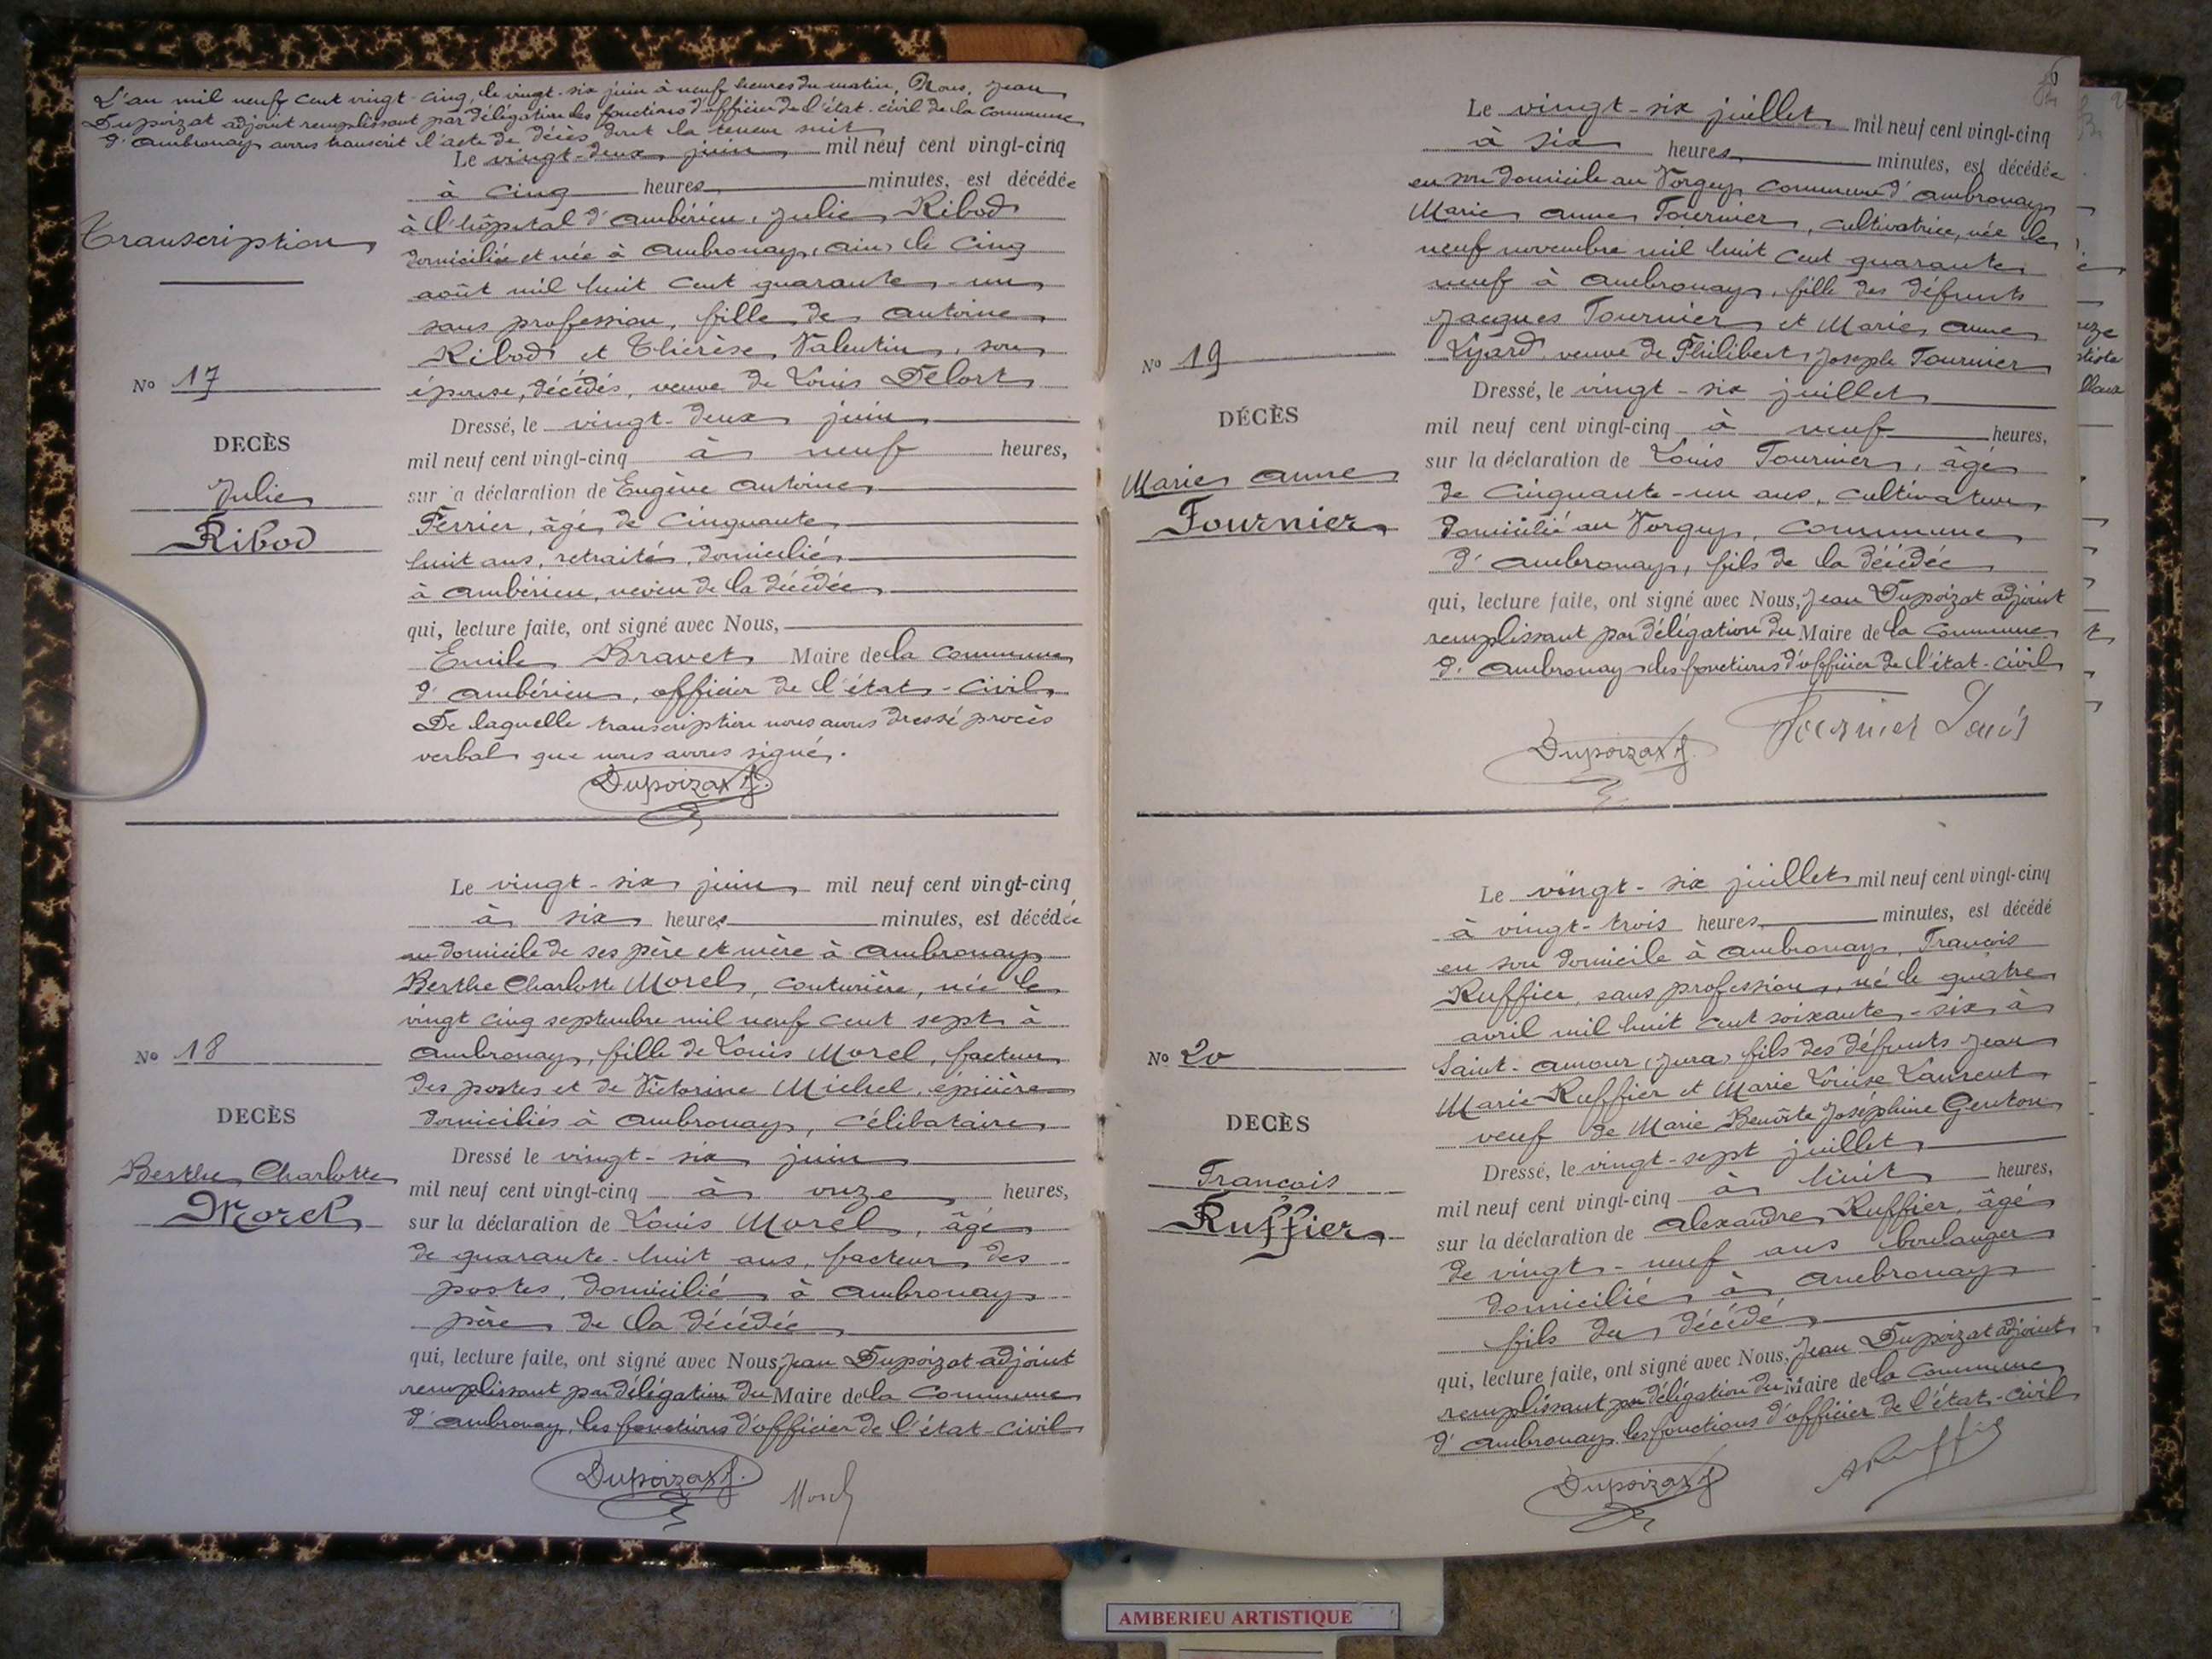 L'an mil neuf cent vingt-cinq, le vingt-six juin à neuf heures du matin, Nous, Jean
Dupoizat adjoint remplissant par délégation les fonctions d'officier de l'état-civil de la commune
d'Ambronay avons transcrit l'acte de décès dont la teneur suit
Transcription
Le vingt-deux juin mil neuf cent vingt-cinq
à cinq heures minutes, est décédée
à l'hôpital d'Ambérieu, Julie Ribod
domiciliée et née à Ambronay (Ain) le cinq
août mil huit cent quarante-un
sans profession, fille de Antoine
Ribod et Thérèse Valentin, son
épouse, décédés, veuve de Louis Delort
No 17
DECÈS
Julie
Ribod
Dressé, le vingt-deux juin
mil neuf cent vingt-cinq à neuf heures,
sur la déclaration de Eugène Antoine
Ferrier, âgé de cinquante
huit ans, retraité, domicilié
à Ambérieu, neveu de la décédée
qui, lecture faite, ont signé avec Nous,
Emile Bravet Maire de la commune
d'Ambérieu, officier de l'état-civil.
De laquelle transcription nous avons dressé procès
verbal que nous avons signé.
Dupoizat J.
Le vingt-six juin mil neuf cent vingt-cinq
à six heures minutes, est décédée
au domicile de ses père et mère à Ambronay
Berthe Charlotte Morel, couturière, née le
vingt cinq septembre mil neuf cent sept à
Ambronay, fille de Louis Morel, facteur
des postes et de Victorine Michel, épicière
domiciliés à Ambronay, célibataire
No 18
DECÈS
Berthe Charlotte
Morel
Dressé le vingt-six juin
mil neuf cent vingt-cinq à onze heures,
sur la déclaration de Louis Morel, âgé
de quarante-huit ans, facteur des
postes, domicilié à Ambronay
père de la décédée
qui, lecture faite, ont signé avec Nous, Jean Dupoizat adjoint
remplissant par délégation du Maire de la commune
d'Ambronay, les fonctions d'officier de l'état-civil
Dupoizat J. Morel
Le vingt-six juillet mil neuf cent vingt-cinq
à six heures minutes, est décédée
en son domicile au Vorgey commune d'Ambronay
Marie Anne Fournier, cultivatrice, née le
neuf novembre mil huit cent quarante
neuf à Ambronay, fille des défunts
Jacques Fournier et Marie Anne
Lyard, veuve de Philibert Joseph Fournier
No 19
DÉCÈS
Marie Anne
Fournier
Dressé, le vingt-six juillet
mil neuf cent vingt-cinq à neuf heures,
sur la déclaration de Louis Fournier, âgé
de cinquante-un ans, cultivateur
domicilié au Vorgey, commune
d'Ambronay, fils de la décédée
qui, lecture faite, ont signé avec Nous, Jean Dupoizat adjoint
remplissant par délégation du Maire de la commune
d'Ambronay les fonctions d'officier de l'état-civil
Dupoizat J. Fournier Louis
Le vingt-six juillet mil neuf cent vingt-cinq
à vingt-trois heures minutes, est décédé
en son domicile à Ambronay, François
Ruffier, sans profession, né le quatre
avril mil huit cent soixante-six à
Saint-Amour (Jura) fils des défunts Jean
Marie Ruffier et Marie Louise Laurent
veuf de Marie Benoîte Joséphine Genton
No 20
DECÈS
François
Ruffier
Dressé, le vingt-sept juillet
mil neuf cent vingt-cinq à huit heures,
sur la déclaration de Alexandre Ruffier, âgé
de vingt-neuf ans boulanger
domicilié à Ambronay
fils du décédé
qui, lecture faite, ont signé avec Nous, Jean Dupoizat adjoint
remplissant par délégation du Maire de la commune
d'Ambronay les fonctions d'officier de l'état-civil
Dupoizat J. A Ruffier
AMBERIEU ARTISTIQUE